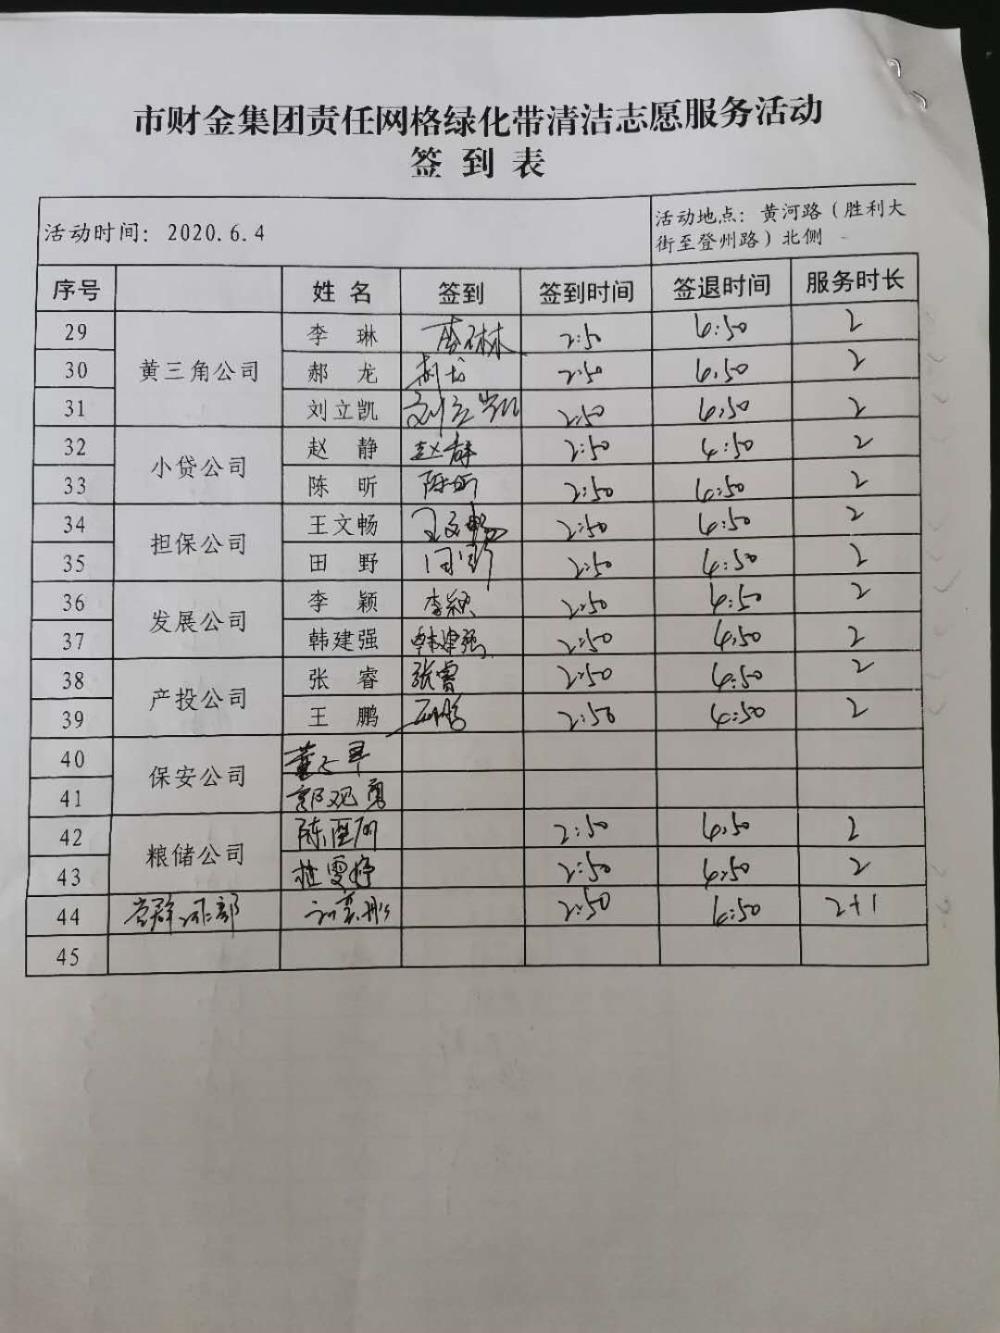 市财金集团责任网格绿化带清洁志愿服务活动
签到表
活动时间：2020.6.4
活动地点：黄河路（胜利大
街至登州路）北侧
序号 姓名 签到 签到时间 签退时间 服务时长
29 黄三角公司 李琳 李琳 2:50 4:50 2
30 郝龙 郝龙 2:50 4:50 2
31 刘立凯 刘立凯 2:50 4:50 2
32 小贷公司 赵静 赵静 2:50 4:50 2
33 陈昕 陈昕 2:50 4:50 2
34 担保公司 王文畅 王文畅 2:50 4:50 2
35 田野 田野 2:50 4:50 2
36 发展公司 李颖 李颖 2:50 4:50 2
37 韩建强 韩建强 2:50 4:50 2
38 产投公司 张睿 张睿 2:50 4:50 2
39 王鹏 王鹏 2:50 4:50 2
40 保安公司
41 郭观勇
42 粮储公司 2:50 4:50 2
43 杜雯婷 2:50 4:50 2
44 党群工作部 2:50 4:50 2+1
45